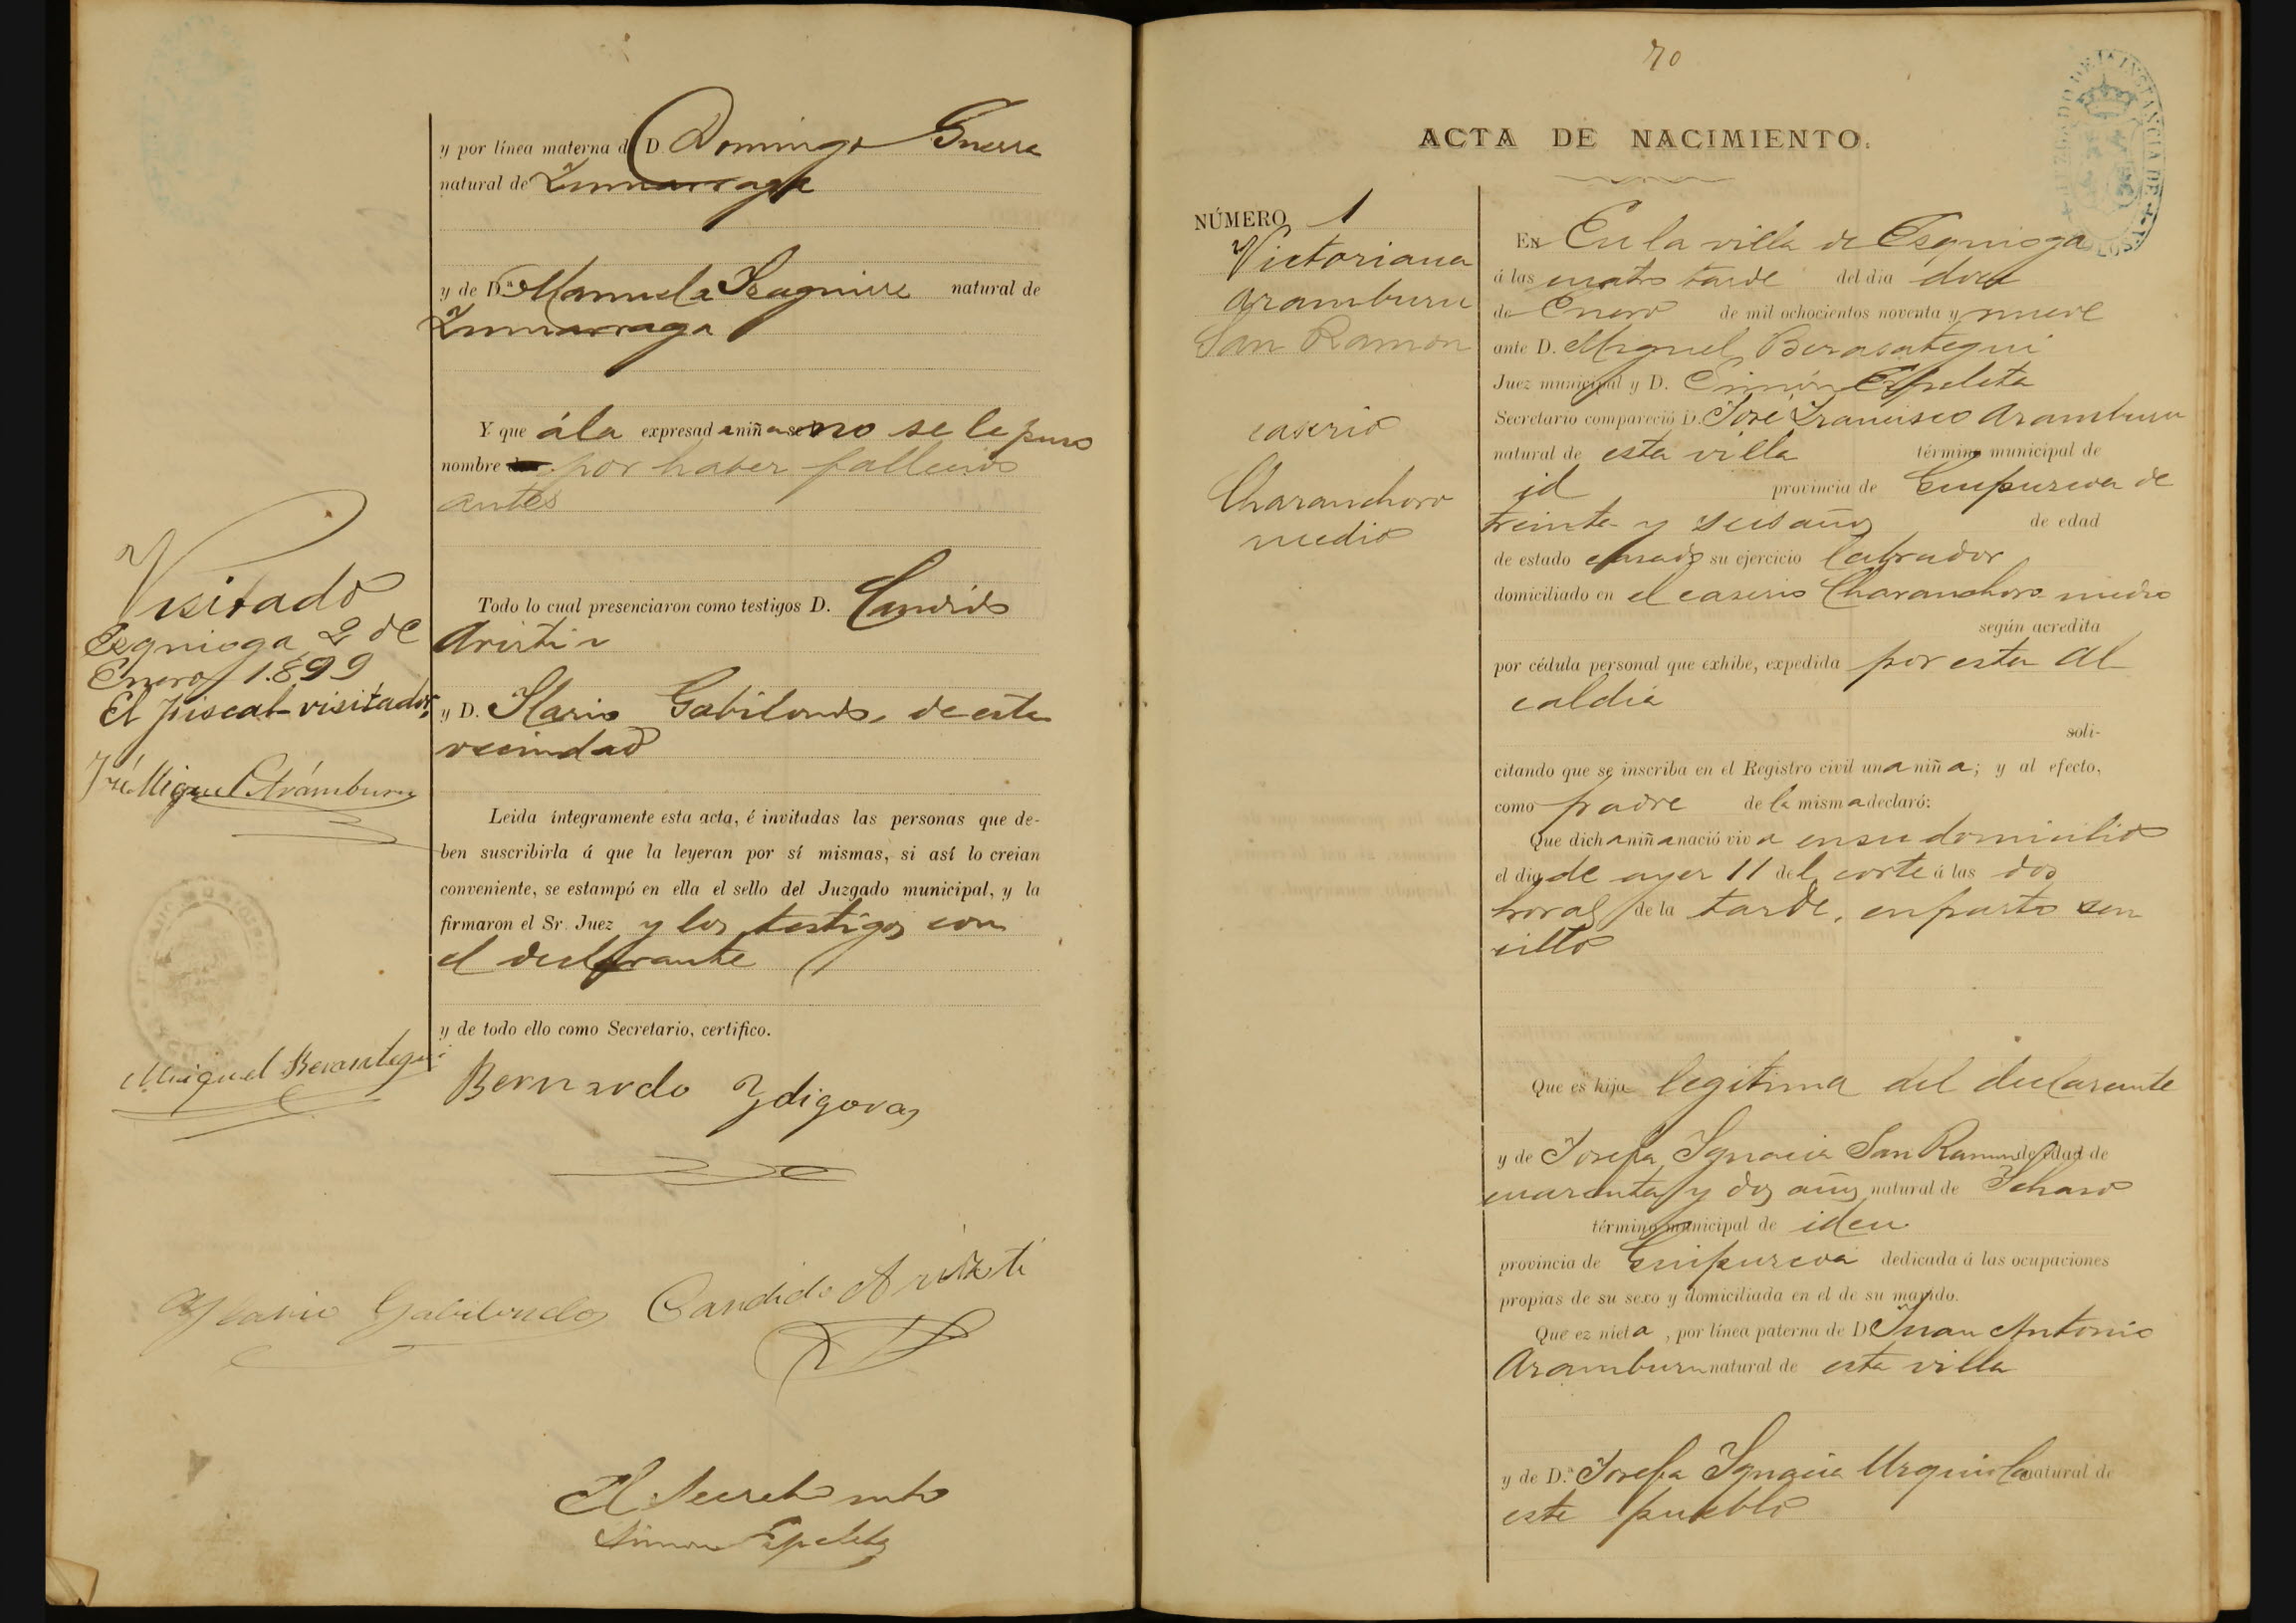 y por línea materna de D. Domingo Guerra
natural de Zumarraga
y de D.ª Manuela Izaguirre natural de
Zumarraga
Y que á la expresada niña se no se le puso
nombre por haber fallecido
antes
Todo lo cual presenciaron como testigos D. Candido
Aristi
y D. Ilario Gabilondo, de esta
vecindad
Leida íntegramente esta acta, é invitadas las personas que de-
ben suscribirla á que la leyeran por sí mismas, si así lo creian
conveniente, se estampó en ella el sello del Juzgado municipal, y la
firmaron el Sr. Juez y los testigos con
el declarante
y de todo ello como Secretario, certifico.
Visitado
Ezquioga 2 de
Enero 1.899
El fiscal visitador,
José Miguel Arámburu
Miguel Berasategui
Bernardo Ydigoras
Ylario Gabilondo Candido Aristi
El Secretario
Simon Ezpeleta
70
ACTA DE NACIMIENTO.
NÚMERO 1
Victoriana
Aramburu
San Ramon
caserio
Charanchoro
medio
En En la villa de Ezquioga
á las cuatro tarde del dia doce
de Enero de mil ochocientos noventa y nueve
ante D. Miguel Berasategui
Juez municipal y D. Simón Ezpeleta
Secretario compareció D. José Francisco Aramburu
natural de esta villa término municipal de
id provincia de Guipuzcoa de
treinta y seis años de edad
de estado casado su ejercicio labrador
domiciliado en el caserio Charanchoro medio
según acredita
por cédula personal que exhibe, expedida por esta Al
caldia
soli-
citando que se inscriba en el Registro civil una niña; y al efecto,
como padre de la misma declaró:
Que dicha niña nació viva en su domicilio
el dia de ayer 11 del corte á las dos
horas de la tarde, en parto sen
cillo
Que es hija legitima del declarante
y de Josefa Ignacia San Ramon de edad de
cuarenta y dos años natural de Ichaso
término municipal de idem
provincia de Guipuzcoa dedicada á las ocupaciones
propias de su sexo y domiciliada en el de su marido.
Que ez nieta, por línea paterna de D Juan Antonio
Aramburu natural de esta villa
y de D.ª Josefa Ignacia Urquiola natural de
este pueblo